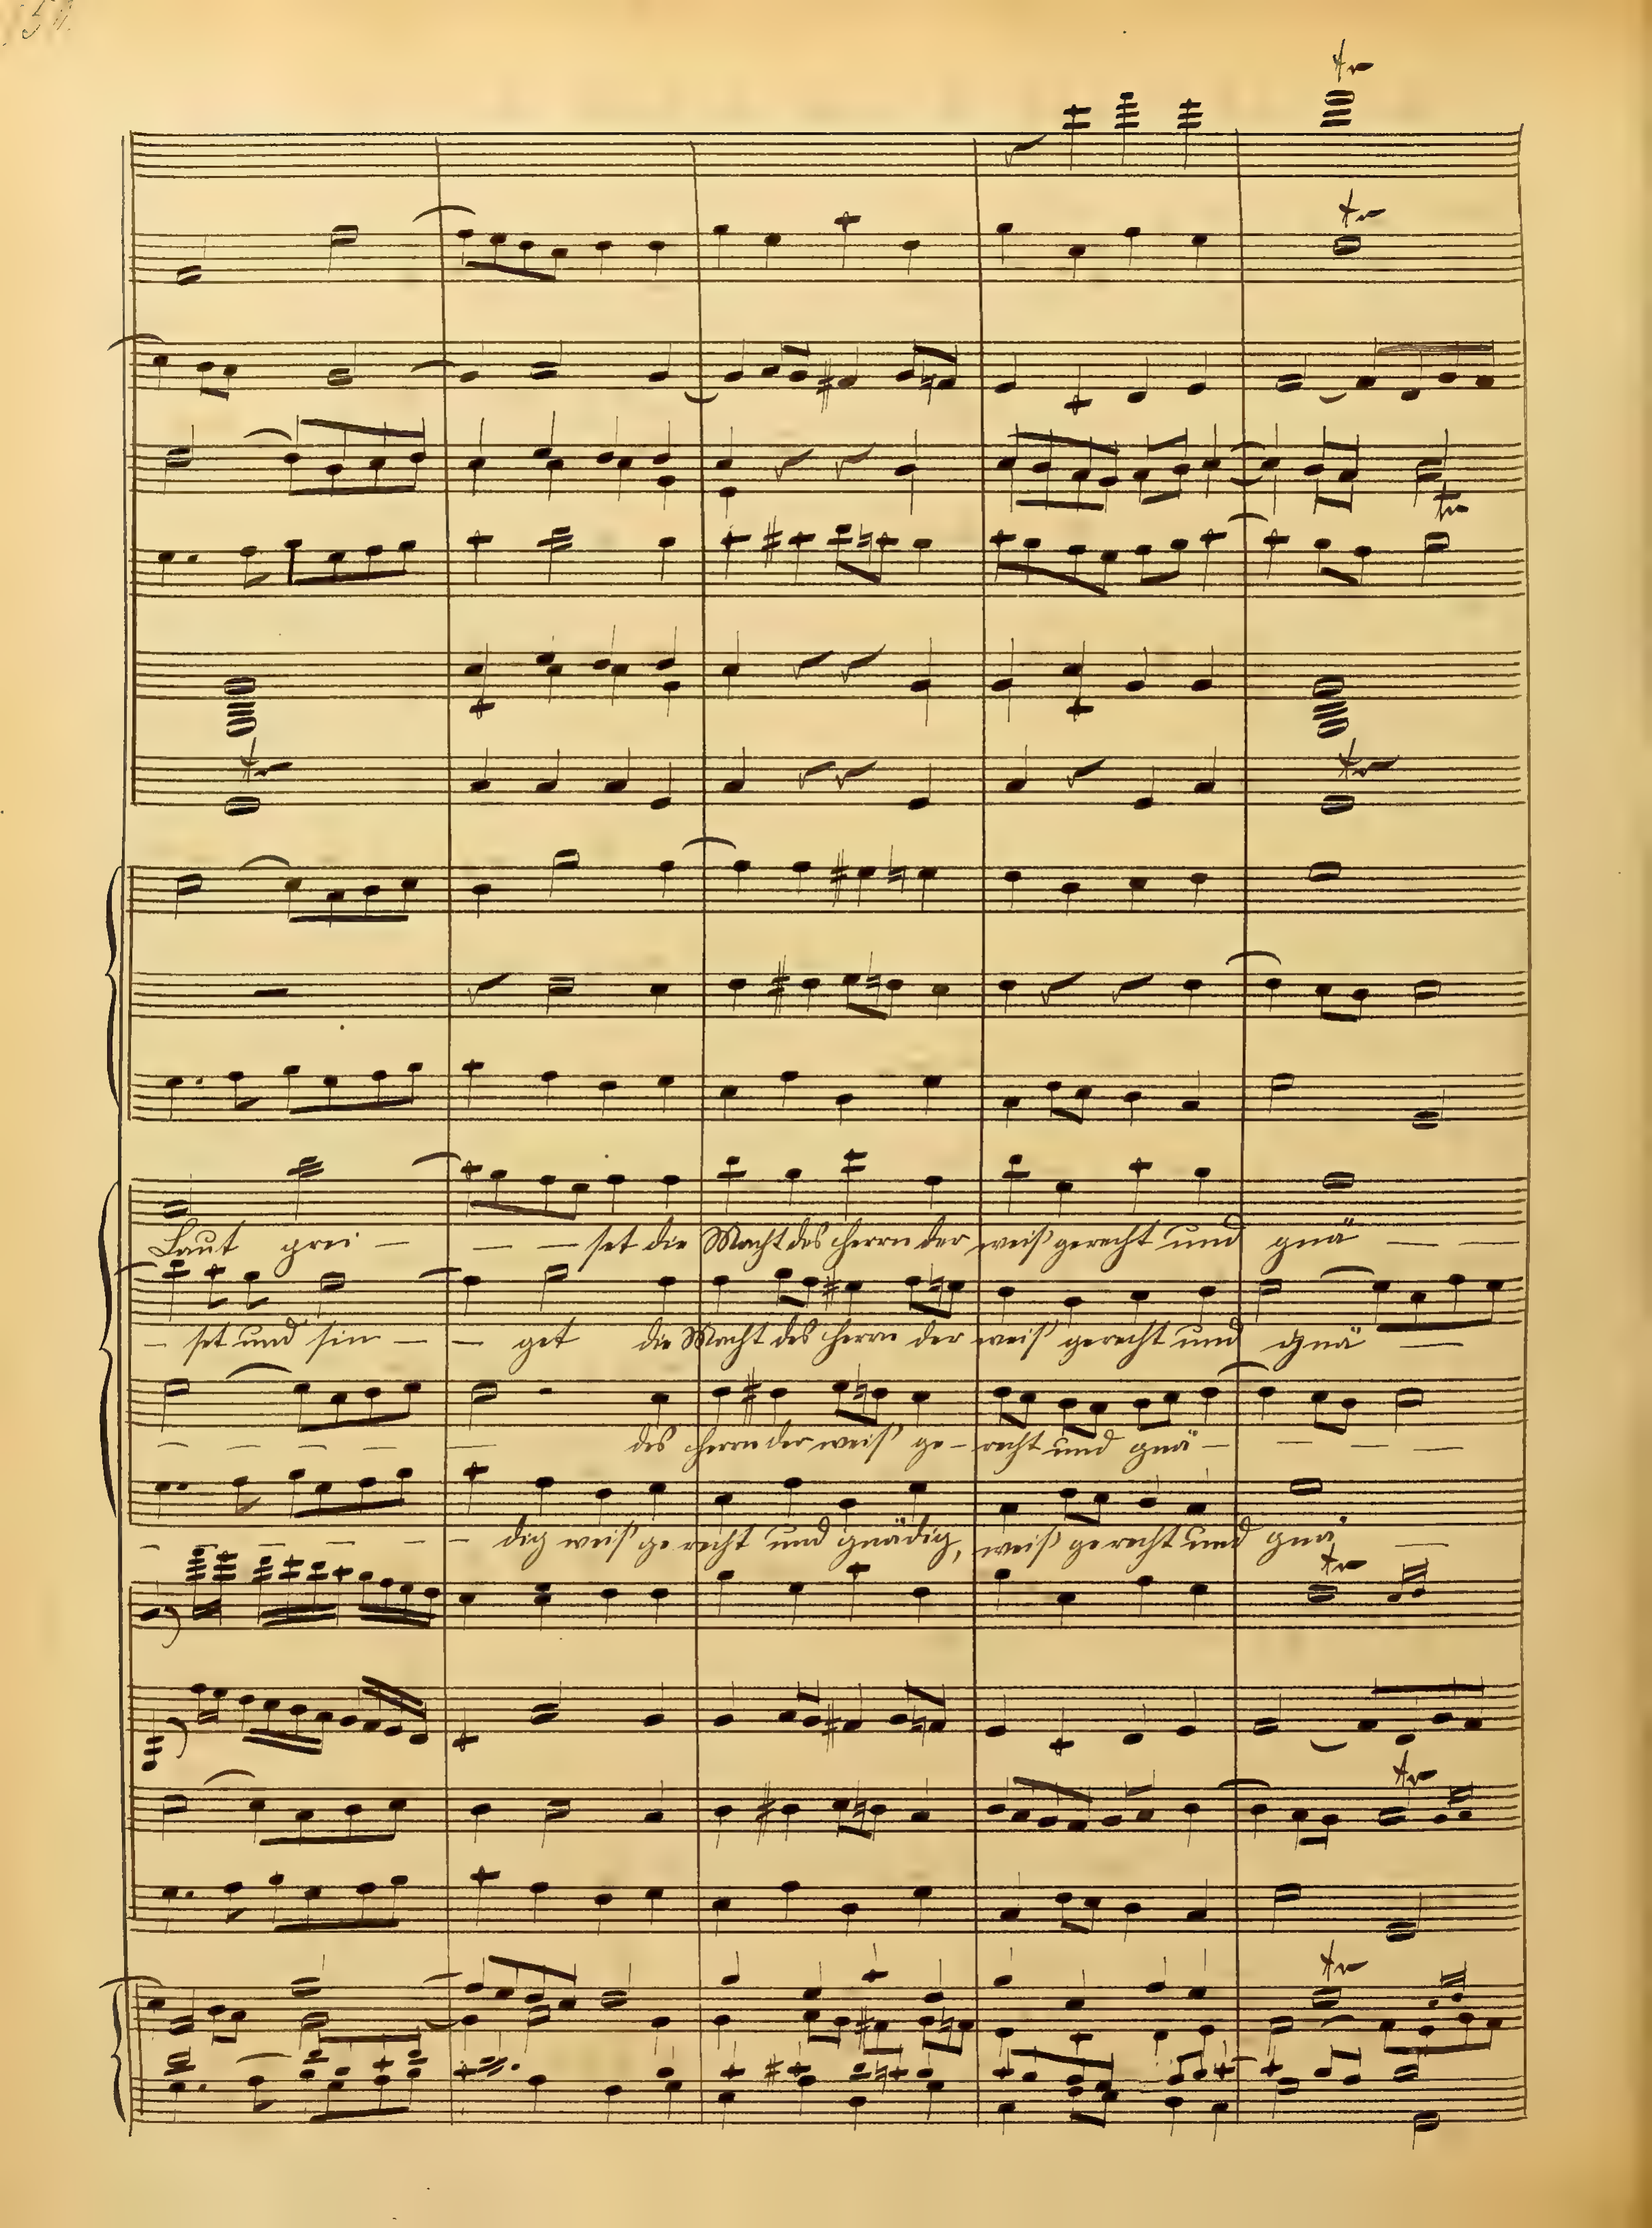 tr
tr
tr
tr
tr
Laut prei - - - set die Macht des Herrn der weiß gerecht und gnä - - -
- set und sin - - get die Macht des Herrn der weiß gerecht und gnä -
- - - - - des Herrn der weiß ge - recht und gnä - - - - -
- - - - - - - dig weiß gerecht und gnädig, weiß gerecht und gnä -
tr
tr
tr